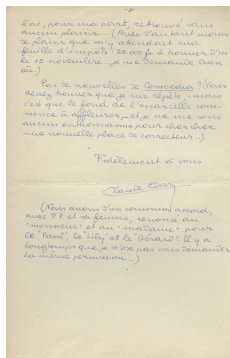 -2-
l'ai, pour ma part, retrouvé sans
aucun plaisir... (Avec d'autant moins
de plaisir que m'y attendait ma
feuille d'impôts : à trouver d'ici
le 15 novembre... je me demande bien
où)
Pas de nouvelles de Comoedia ? (Vous
devez trouver que je me répète, mais
c'est que le fond de l'escarcelle com-
mence à affleurer, et je ne me sens
aucun enthousiasme pour chercher
une nouvelle place de correcteur...)
Fidèlement à vous
(Nous avons d'un commun accord,
avec P.P. et sa femme, renoncé au
"monsieur" et au "madame" pour
le "Paul", le "Lily" et le "Gérard". Il y a
longtemps que je n'ose pas vous demander
la même permission...)